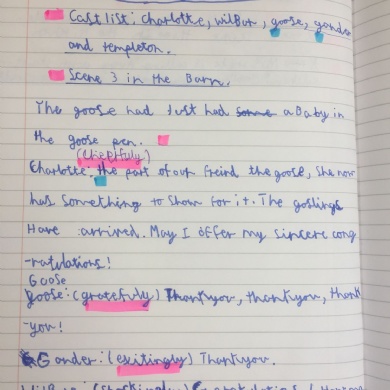 Cast list: charlotte, wilBur, goose, gander
and templeton.
Scene 3 in the Barn.
The goose had Just had some a Baby in
the goose pen.
(cheerfuly)
Charlotte: the part of our freind the goose, she now
has something to show for it. The goslings
Have arrived. May I offer my sincere cong
-ratulations!
Goose
goose: (gratefuly) Thankyou, thankyou, thank
you!
Gander: (exitingly) Thankyou.